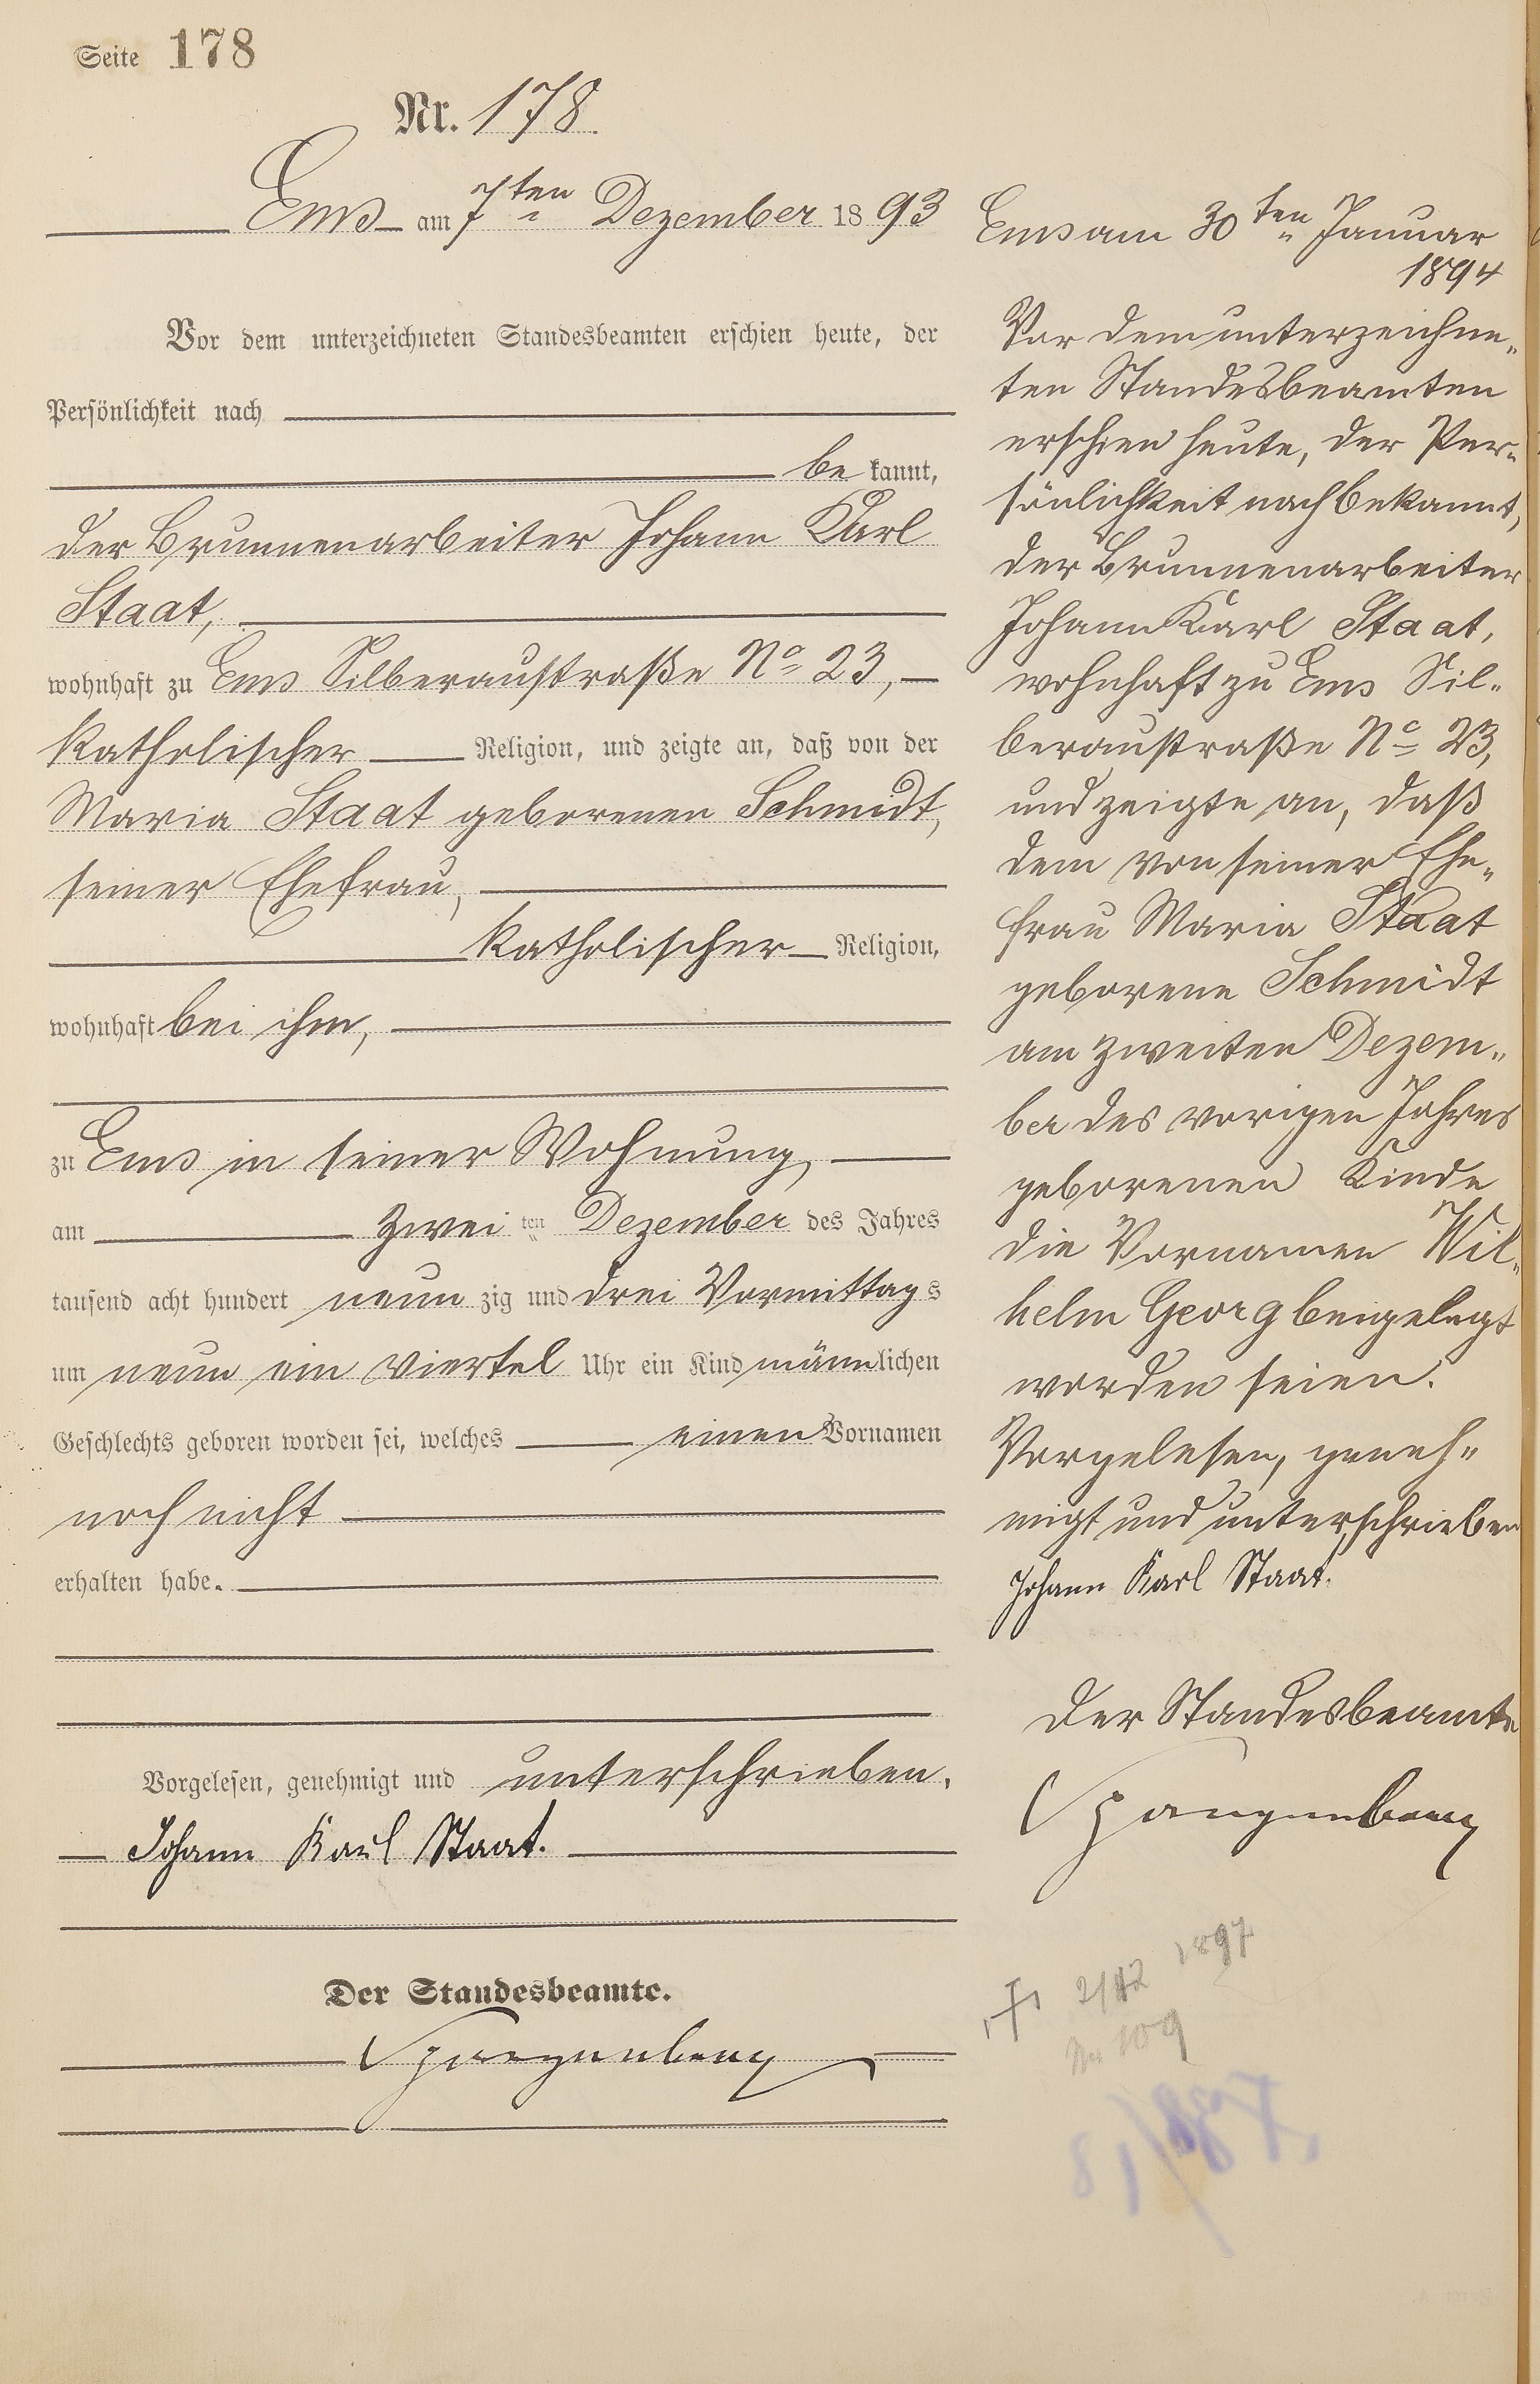 Seite 178
Nr. 178.
Ems am 7ten Dezember 1893
Vor dem unterzeichneten Standesbeamten erschien heute, der
Persönlichkeit nach
bekannt,
der Brunnenarbeiter Johann Karl
Staat,
wohnhaft zu Ems Silberaustraße No 23,
katholischer Religion, und zeigte an, daß von der
Maria Staat geborenen Schmidt,
seiner Ehefrau,
katholischer Religion,
wohnhaft bei ihm,
zu Ems in seiner Wohnung,
am zweiten Dezember des Jahres
tausend acht hundert neunzig und drei Vormittags
um neun ein viertel Uhr ein Kind männlichen
Geschlechts geboren worden sei, welches einen Vornamen
noch nicht
erhalten habe.
Vorgelesen, genehmigt und unterschrieben.
Johann Karl Staat.
Der Standesbeamte.
Spangenberg
Ems am 30ten Januar
1894
Vor dem unterzeichne-
ten Standesbeamten
erschien heute, der Per-
sönlichkeit nach bekannt,
der Brunnenarbeiter
Johann Karl Staat,
wohnhaft zu Ems Sil-
beraustraße No 23,
und zeigte an, daß
dem von seiner Ehe-
frau Maria Staat
geborene Schmidt
am zweiten Dezem-
ber des vorigen Jahres
geborenen Kinde
die Vornamen Wil-
helm Georg beigelegt
worden seien.
Vorgelesen, geneh-
migt und unterschrieben
Johann Karl Staat.
Der Standesbeamte
Spangenberg
† 2/12 1897
No 109